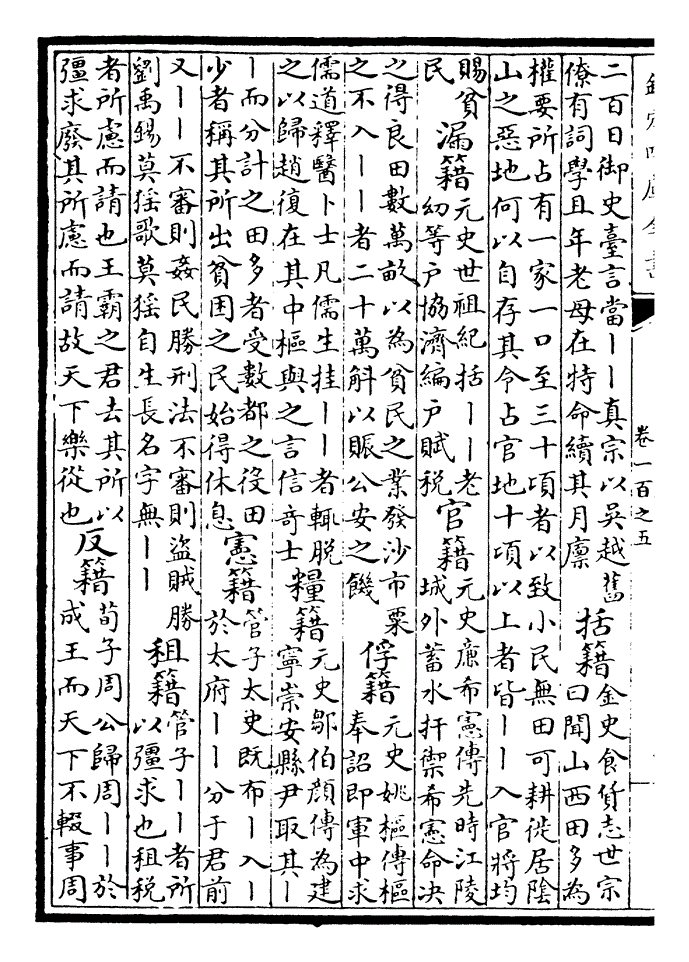 欽定四庫全書
卷一百之五
二百日御史臺言當丨丨真宗以吳越舊
僚有詞學且年老母在特命續其月廪
括籍
金史食貨志世宗
曰聞山西田多為
權要所占有一家一口至三十頃者以致小民無田可耕徙居陰
山之惡地何以自存其令占官地十頃以上者皆丨丨入官將均
賜貧
民
漏籍
元史世祖紀括丨丨老
幼等戶協濟編戶賦税
官籍
元史廉希憲傳先時江陵
城外蓄水扞禦希憲命决
之得良田數萬畝以為貧民之業發沙市粟
之不入丨丨者二十萬斛以賑公安之饑
俘籍
元史姚樞傳樞
奉詔即軍中求
儒道釋醫卜士凡儒生挂丨丨者輒脱
之以歸趙復在其中樞與之言信奇士
糧籍
元史鄒伯顔傳為建
寧崇安縣尹取其丨
丨而分計之田多者受數都之役田
少者稱其所出貧困之民始得休息
憲籍
管子太史既布丨入丨
於太府丨丨分于君前
又丨丨不審則姦民勝刑法不審則盜賊勝
劉禹錫莫猺歌莫猺自生長名字無丨丨
租籍
管子丨丨者所
以彊求也租税
者所慮而請也王霸之君去其所以
彊求廢其所慮而請故天下樂從也
反籍
荀子周公歸周丨丨於
成王而天下不輟事周